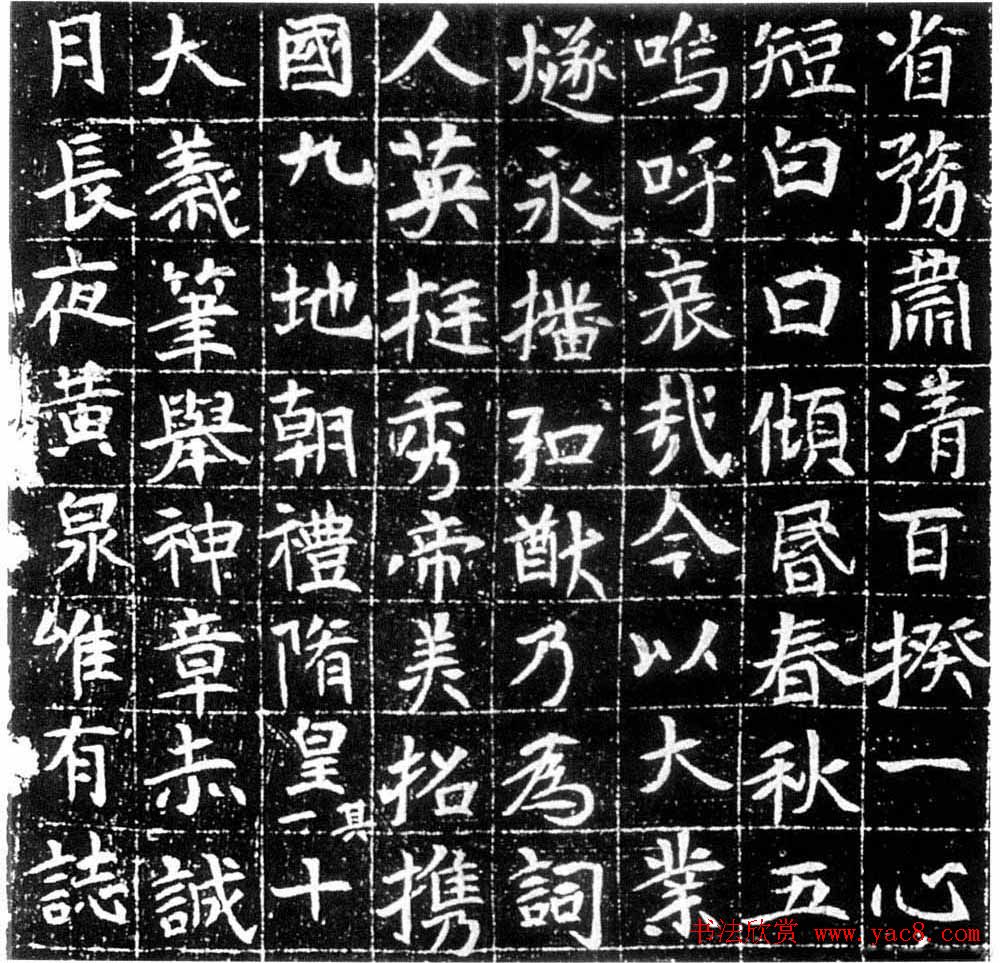 省務肅清百揆一心
短白日傾昬春秋五
嗚呼哀哉今以大業
燧永播弘猷乃為詞
人英挺秀帝美招携
國九地朝禮隋皇其一十
大義筆舉神章赤誠
月長夜黃泉唯有誌
书法欣赏 www.yac8.com